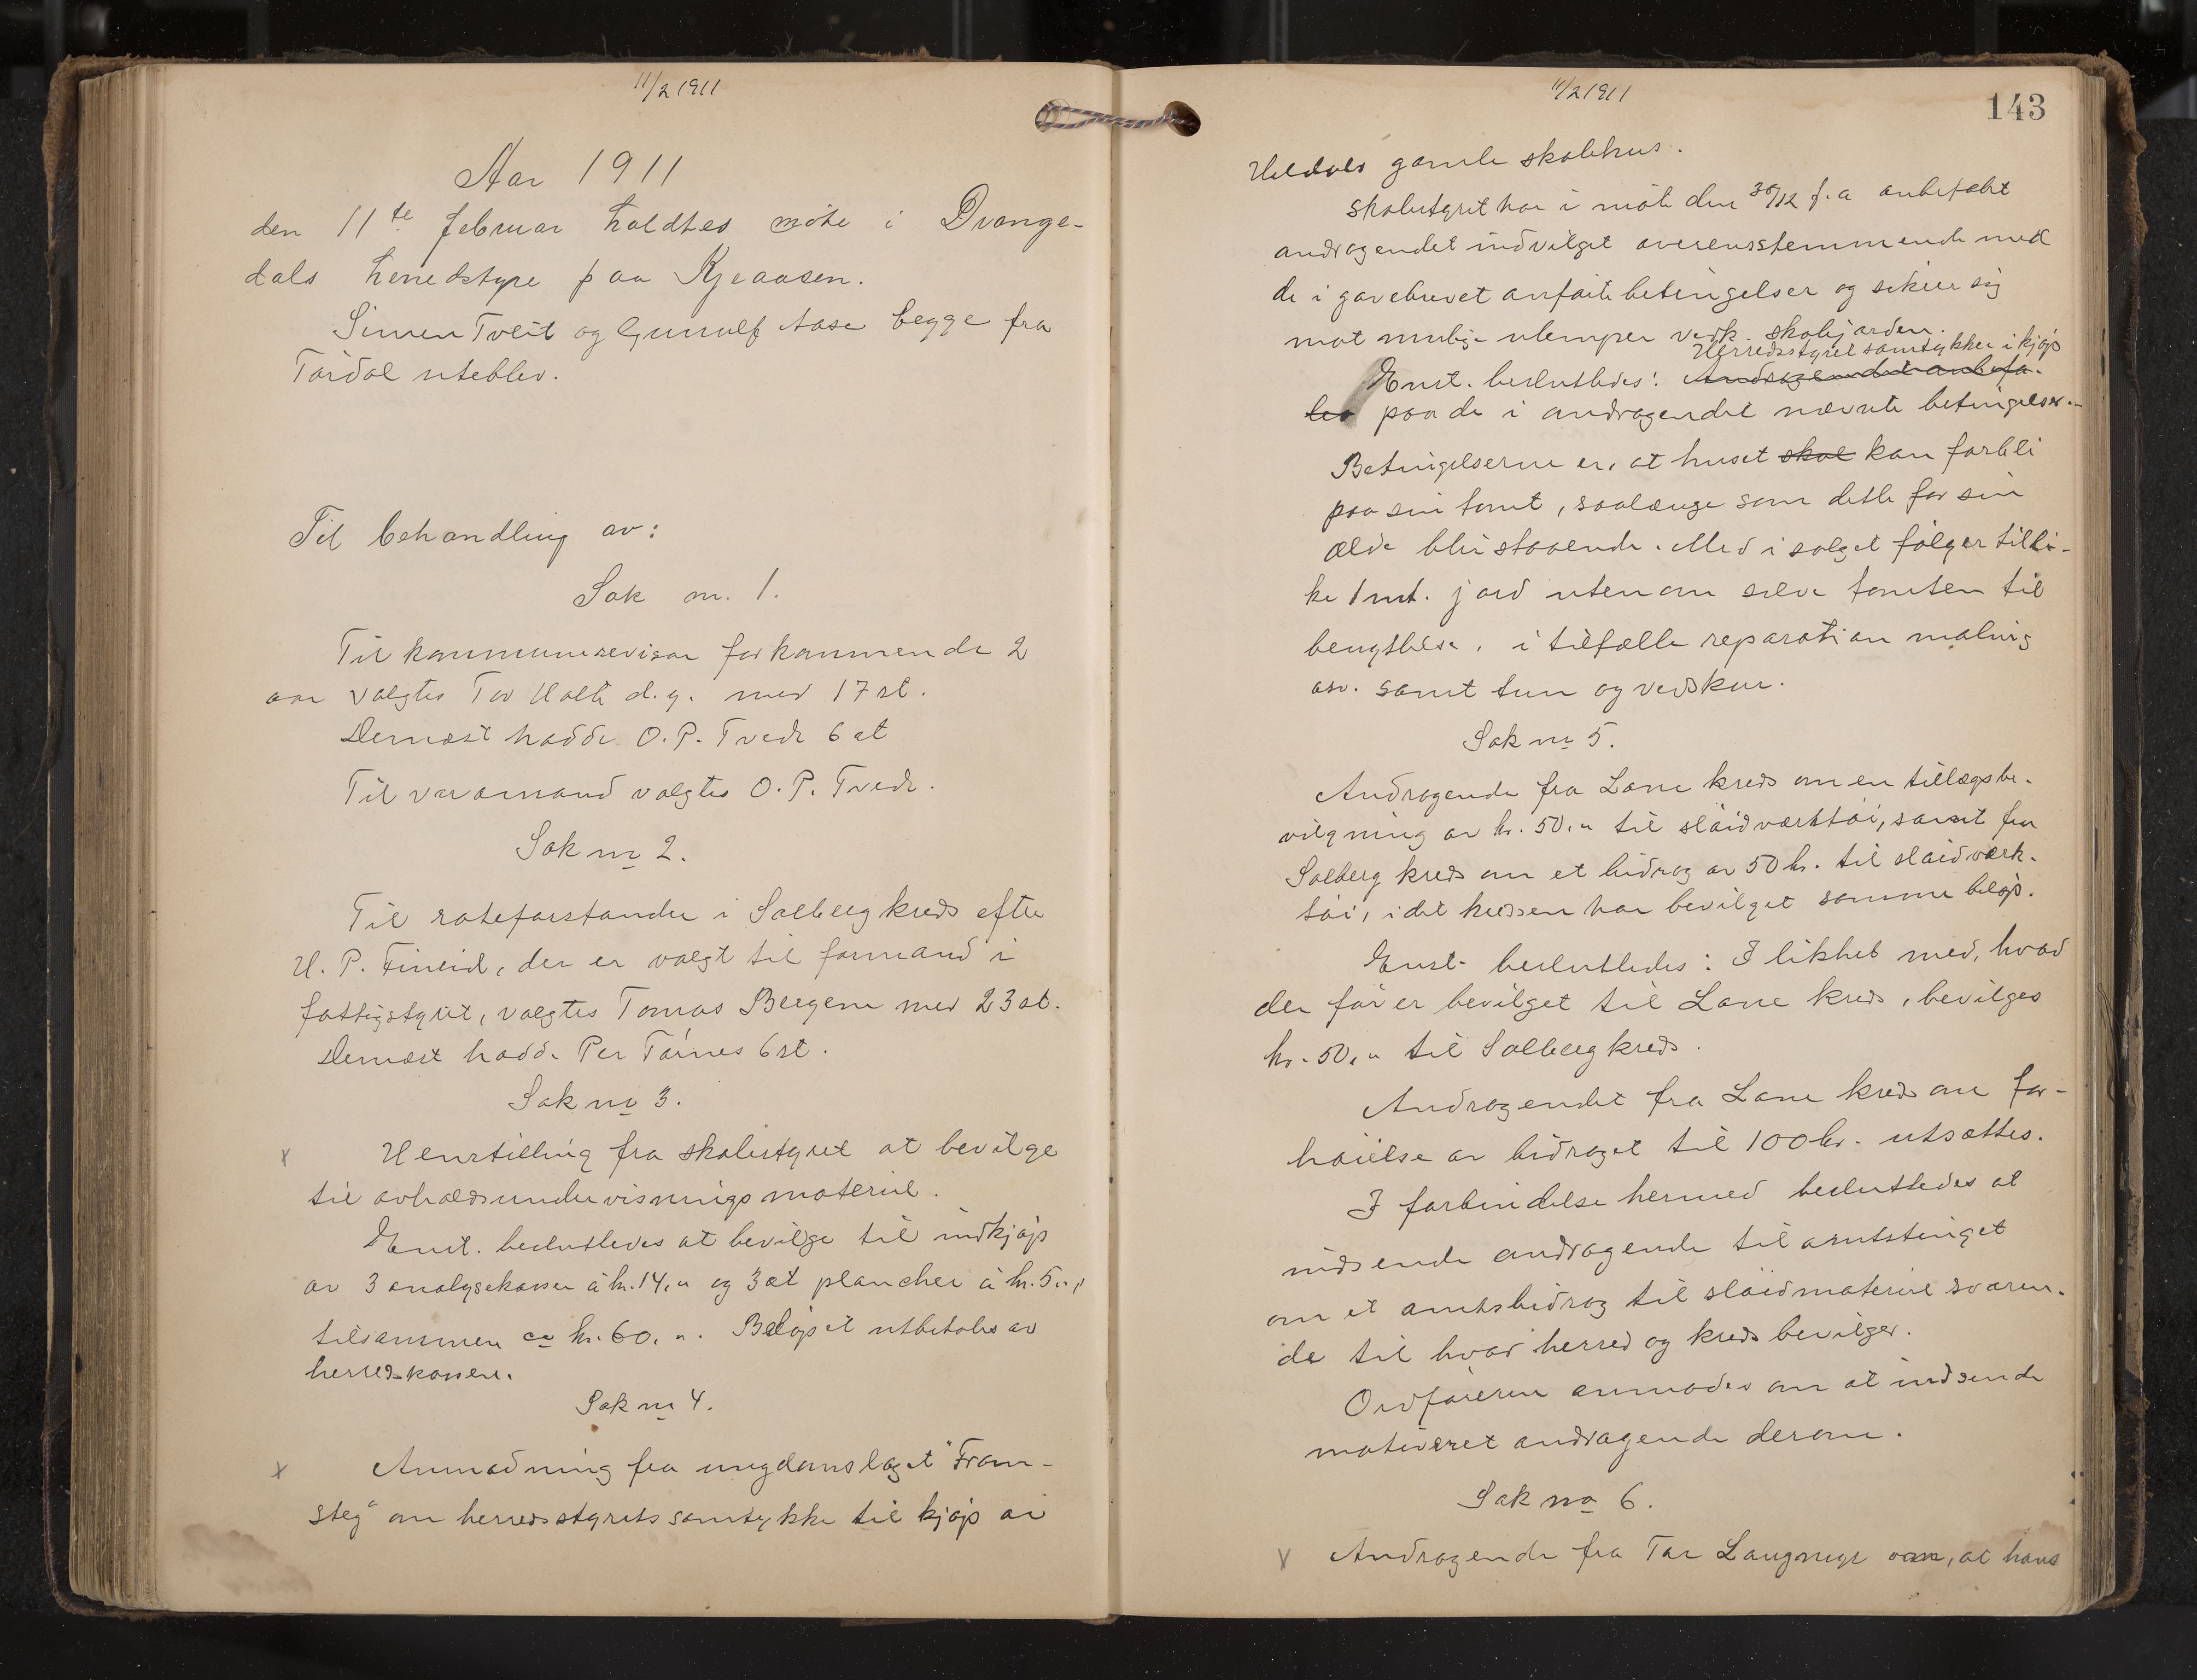 11/2 1911
Aar 1911
den 11te februar holdtes møte i Drange-
dals herredstyre paa Kjeaasen.
Simen Tveit og Gunnulf Aase begge fra
Tørdal uteblev.
Til behandling av:
Sak nr. 1.
Til kommunerevisor for kommende 2
aar valgtes Tov Holte d.y. med 17 st.
Dernæst hadde O. P. Tvede 6 st
Til varamand valgtes O. P. Tvede.
Sak no 2.
Til roteforstander i Solberg kreds efter
H. P. Fineid, der er valgt til formand i
fattigstyret, valgtes Tomas Bergene med 23 st.
Dernæst hadde Per Tørnes 6 st.
Sak no 3.
x Henstilling fra skolestyret at bevilge
til avholdsundervisningsmateriel.
Enst. besluttedes at bevilge til indkjøp
av 3 analysekasser á kr. 14,,, og 3 st plancher á kr. 5,,,
tilsammen ca kr. 60,,,. Beløpet utbetales av
herredskassen.
Sak no 4.
x Anmodning fra ungdomslaget "Fram-
steg" om herredsstyrets samtykke til kjøp av
11/2 1911
143
Heldals gamle skolehus.
Skolestyret har i møte den 30/12 f. a anbefalt
andragendet indvilget overensstemmende med
de i gavebrevet anførte betingelser og sikrer sig
mot mulige ulemper vedk. skolejorden.
Herredsstyret samtykker i kjøp
Enst. besluttedes: Andragendet anbefa-
les paa de i andragendet nævnte betingelser.-
Betingelserne er, at huset skal kan forbli
paa sin tomt, saalænge som dette for sin
ælde blir staaende. Med i salget følger tilli-
ke 1 mt. jord utenom selve tomten til
benyttelse, i tilfælle reparation maling
osv. samt tun og vedskur.
Sak no 5.
Andragende fra Lane kreds om en tillægsbe-
vilgning av kr. 50,,, til sløidværktøi, samt fra
Solberg kreds om et bidrag av 50 kr. til sløidværk-
tøi, idet kredsen har bevilget samme beløp.
Enst. besluttedes: I likhet med, hvad
der før er bevilget til Lane kreds, bevilges
kr. 50,,, til Solberg kreds.
Andragendet fra Lane kreds om for-
høielse av bidraget til 100 kr. utsættes.
I forbindelse hermed besluttedes at
indsende andragende til amtstinget
om et amtsbidrag til sløidmateriel svaren-
de til hvad herred og kreds bevilger.
Ordføreren anmodes om at indsende
motiveret andragende derom.
Sak no 6.
x Andragende fra Tor Laugmyr om, at hans